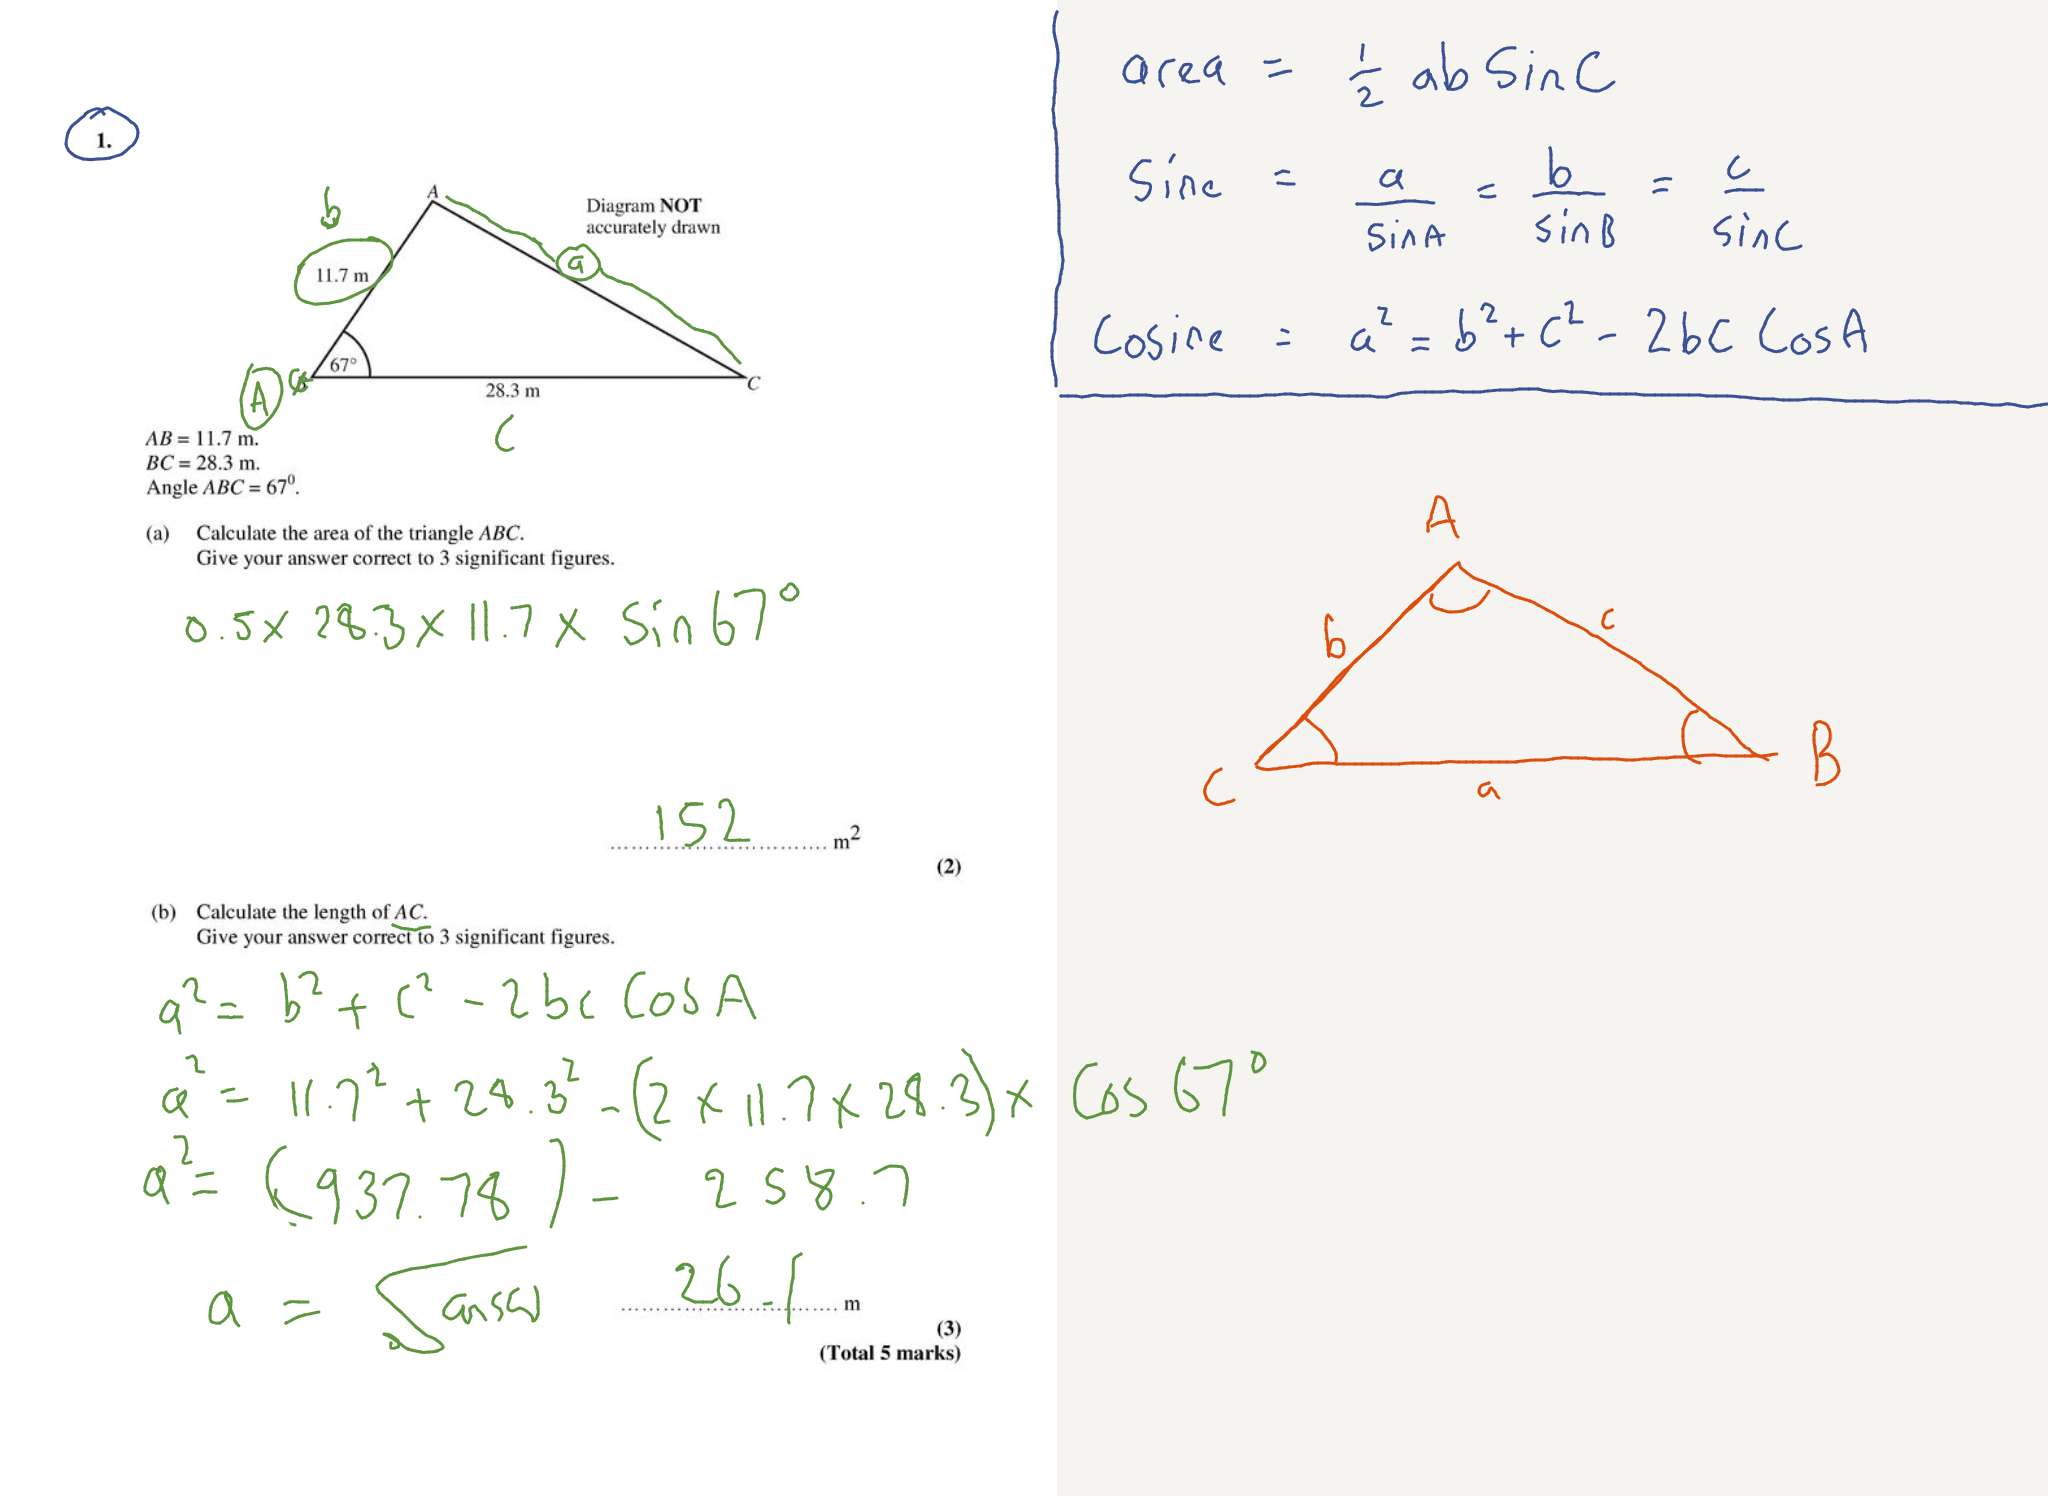 1.
b
A
Diagram NOT
accurately drawn
a
11.7 m
67°
A
28.3 m
C
c
AB = 11.7 m.
BC = 28.3 m.
Angle ABC = 67⁰.
(a) Calculate the area of the triangle ABC.
Give your answer correct to 3 significant figures.
0.5 x 28.3 x 11.7 x Sin 67°
152 m²
(2)
(b) Calculate the length of AC.
Give your answer correct to 3 significant figures.
a² = b² + c² - 2bc Cos A
a² = 11.7² + 28.3² - (2 x 11.7 x 28.3) x Cos 67°
a² = (937.78) - 258.7
a = √
26.1 m
(3)
(Total 5 marks)
area = 1/2 ab Sin C
Sine = a/sinA = b/sinB = c/sinC
Cosine = a² = b² + c² - 2bc Cos A
A
b
c
C
a
B